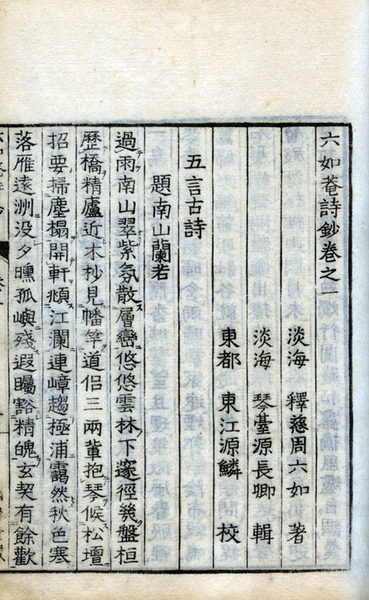 六如菴詩鈔卷之一
淡海 釋慈周六如 著
淡海 琴臺源長卿 輯
東都 東江源鱗 校
五言古詩
題南山蘭若
過雨南山翠紫氛散層巒悠悠雲林下邃徑幾盤桓
歷橋精廬近木杪見幡竿道侶三兩輩抱琴候松壇
招要掃塵榻開軒頫江瀾連嶂趨極浦靄然秋色寒
落雁遠洲没夕曛孤嶼殘遐矚豁精魄玄契有餘歡